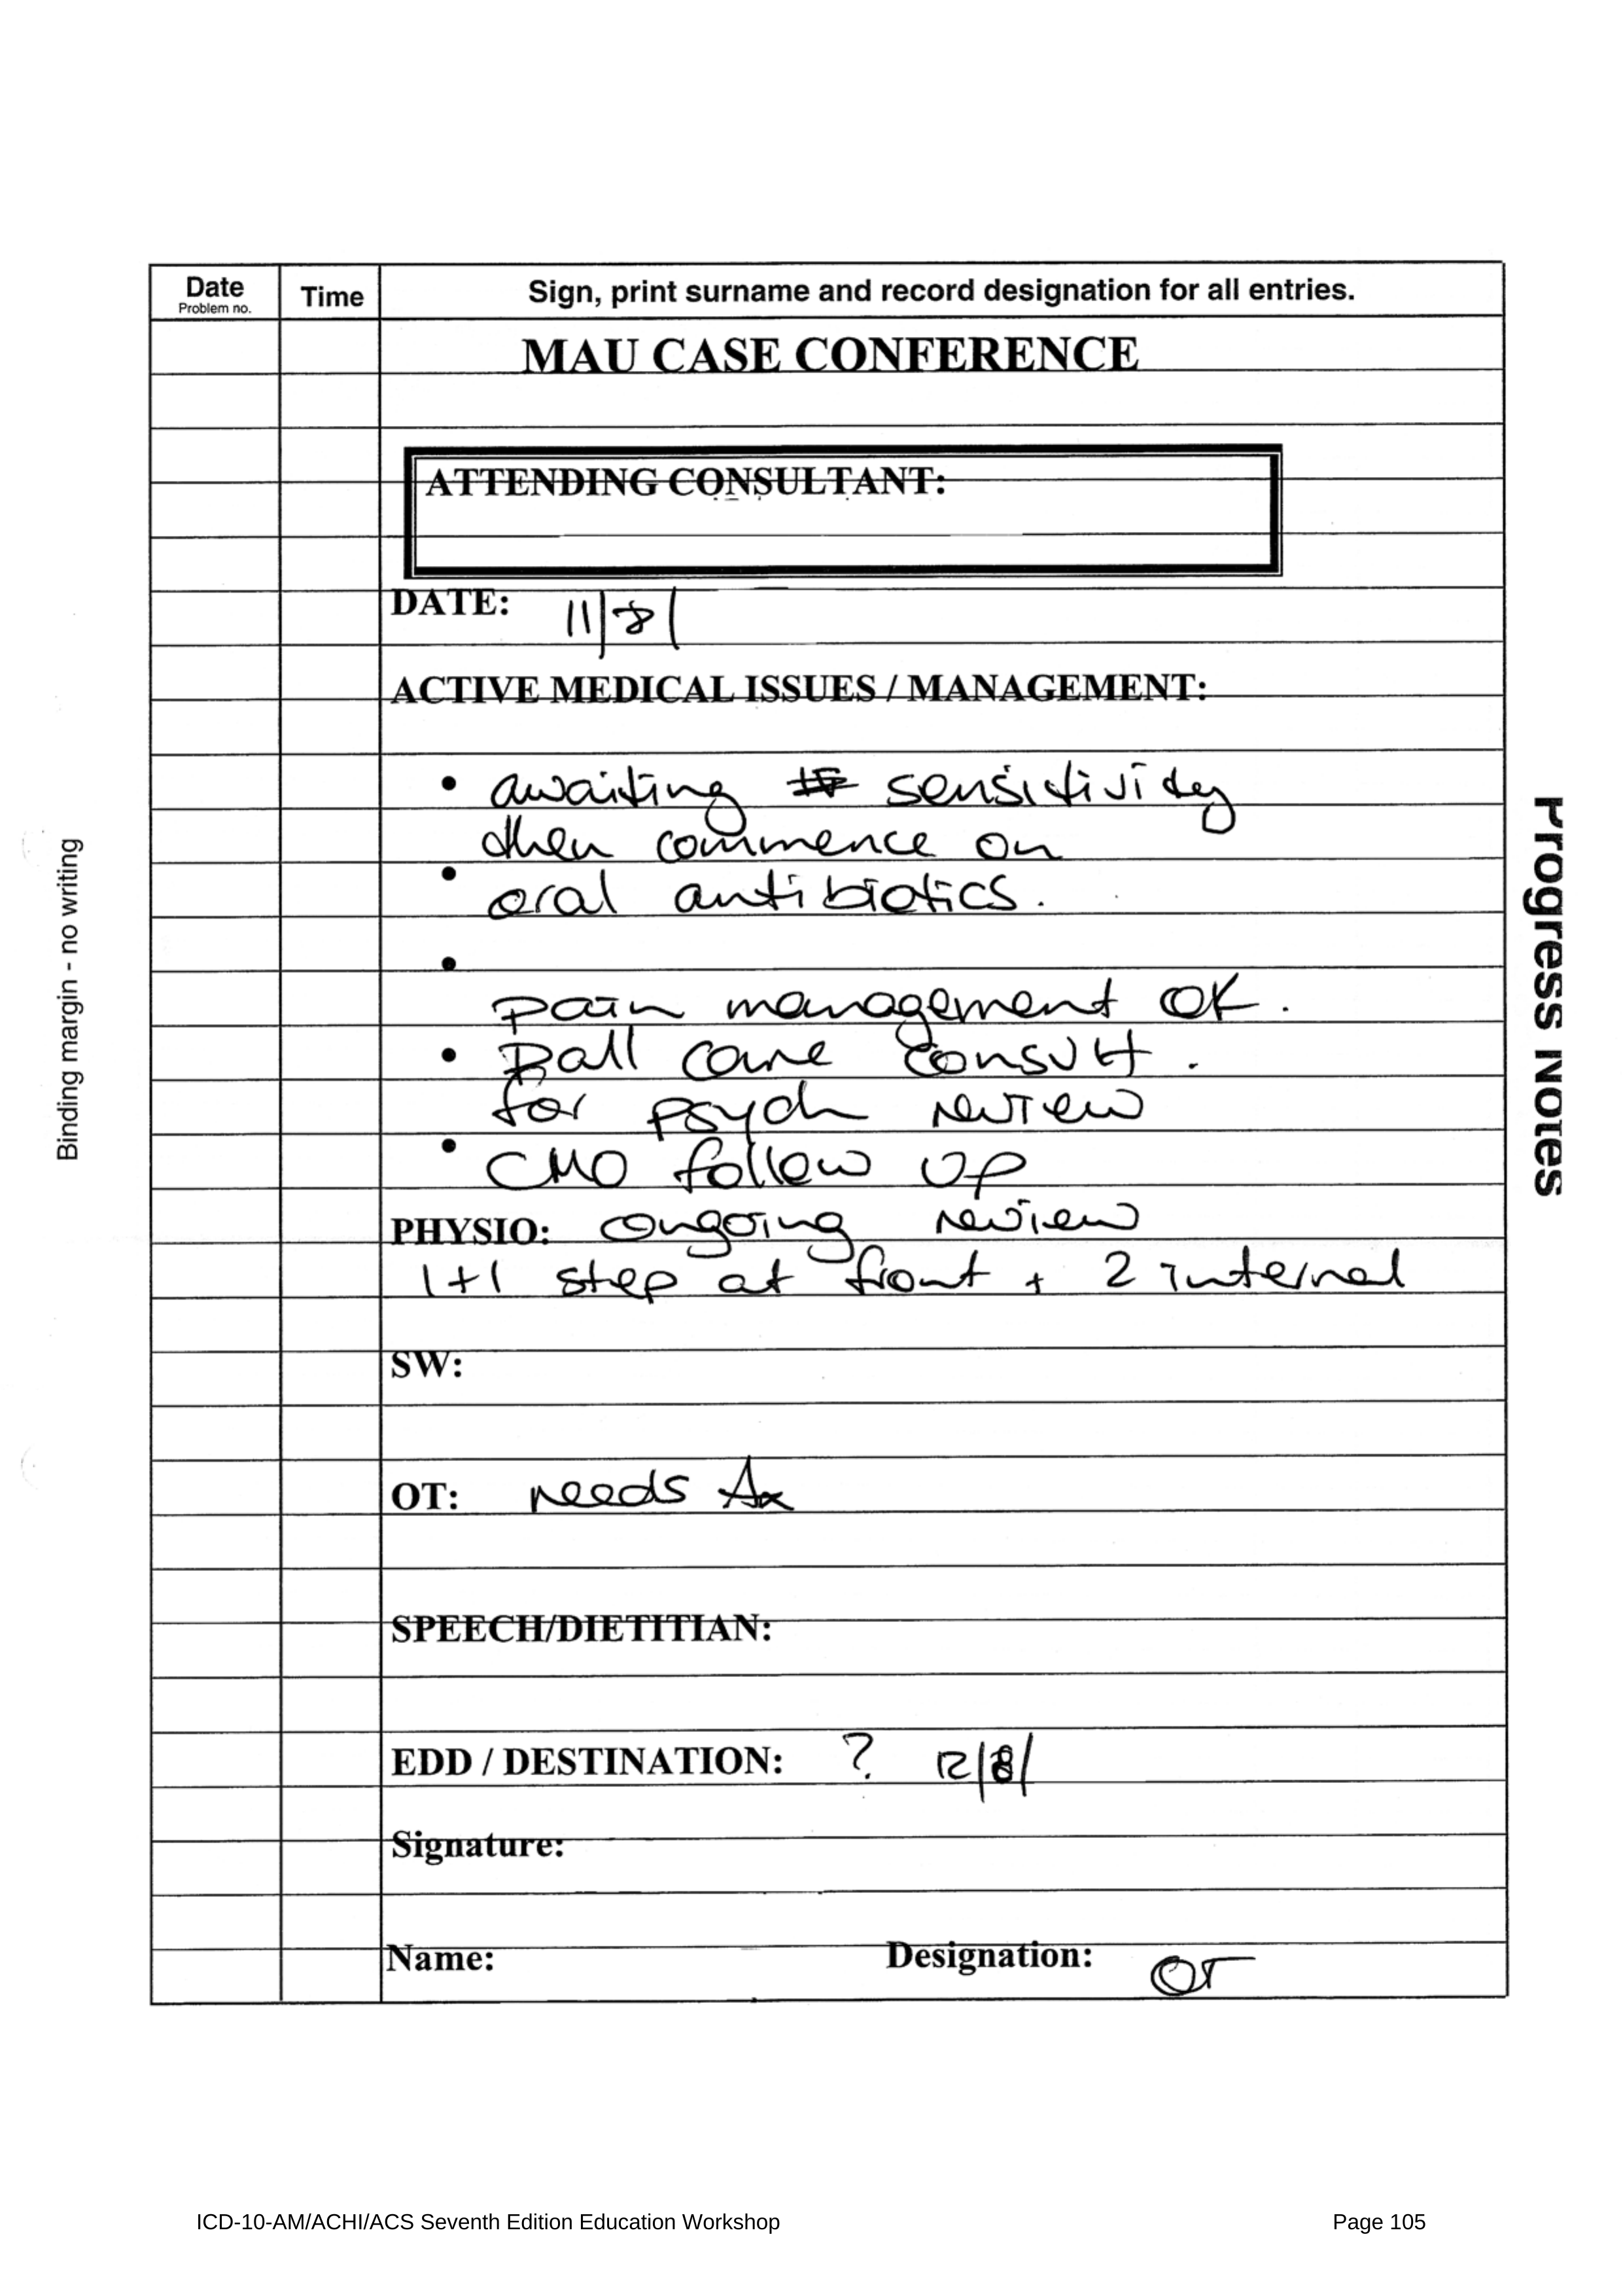 Date
Problem no.
Time
Sign, print surname and record designation for all entries.
MAU CASE CONFERENCE
ATTENDING CONSULTANT:
DATE: 11/8/
ACTIVE MEDICAL ISSUES / MANAGEMENT:
• awaiting sensitivity
then commence on
• oral antibiotics.
•
pain management OK.
• Pall care consult.
for psych review
• CMO follow up
PHYSIO: ongoing review
1+1 step at front + 2 internal
SW:
OT: needs Ax
SPEECH/DIETITIAN:
EDD / DESTINATION: ? 12/8/
Signature:
Name: Designation: OT
Binding margin - no writing
Progress Notes
ICD-10-AM/ACHI/ACS Seventh Edition Education Workshop Page 105